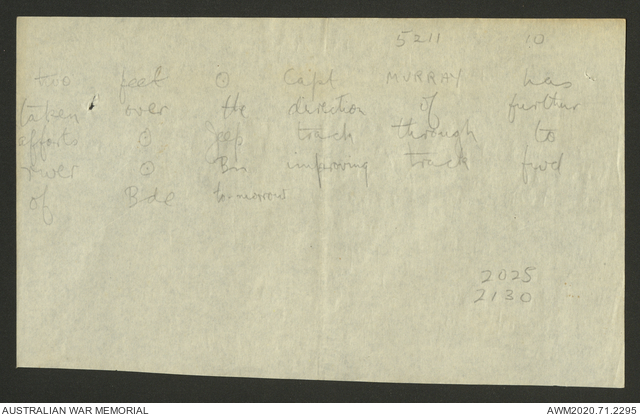 5211 10
two feet ⊙ Capt MURRAY has
taken over the direction of further
efforts ⊙ Jeep track through to
river ⊙ Bn improving track fwd
of Bde tomorrow
2025
2130
AUSTRALIAN WAR MEMORIAL
AWM2020.71.2295